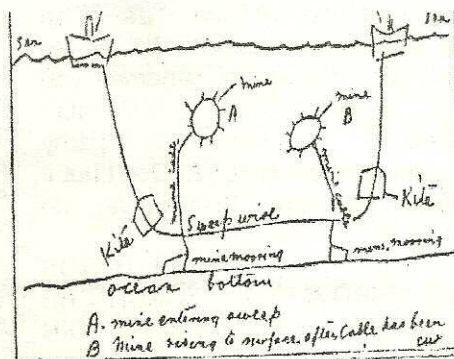 sea
sea
mine
A
mine
B
mine cable
mine cable
Kite
Kite
Sweep wire
mine mooring
mine mooring
ocean bottom
A. mine entering sweep
B Mine rising to surface after Cable has been
cut